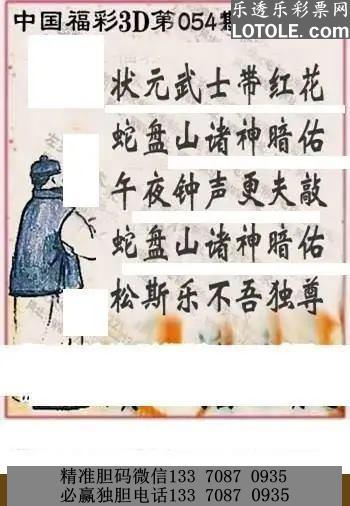 中国福彩3D第054期
乐透乐彩票网
LOTOLE.COM
状元武士带红花
蛇盘山诸神暗佑
午夜钟声更夫敲
蛇盘山诸神暗佑
松斯乐不吾独尊
精准胆码微信133 7087 0935
必赢独胆电话133 7087 0935